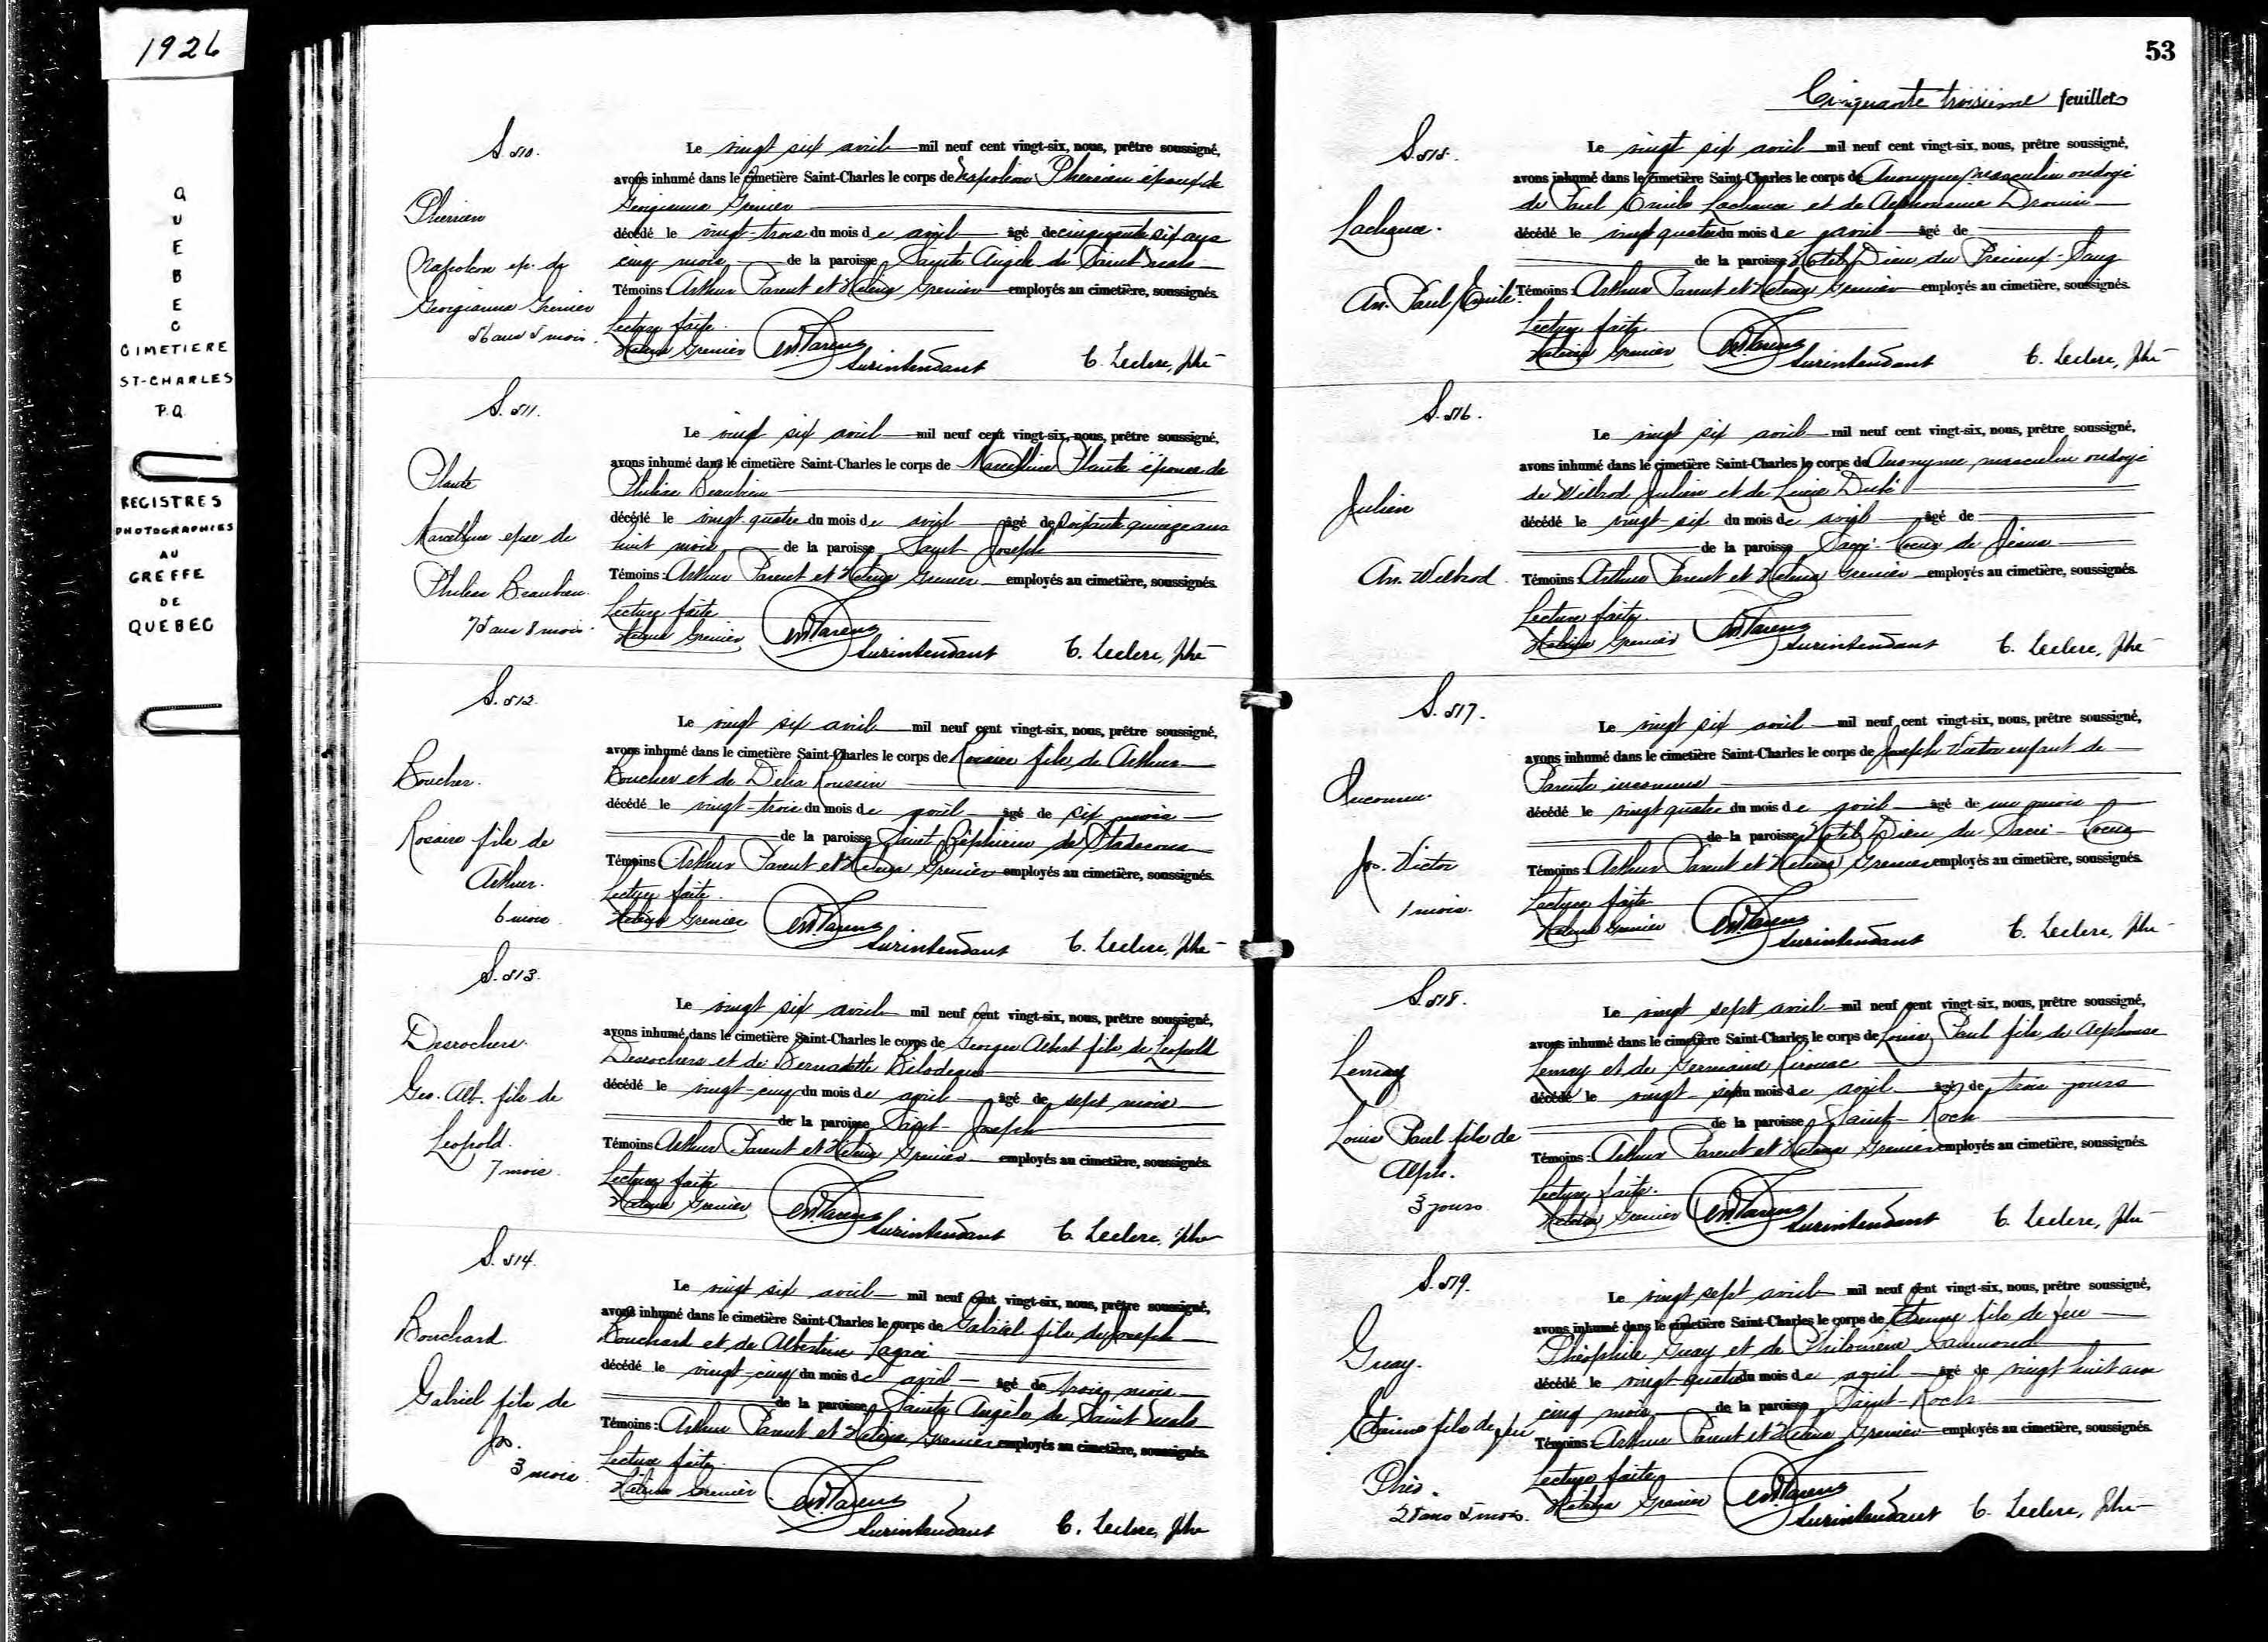 1926
QUEBEC
CIMETIERE
ST-CHARLES
P.Q.
REGISTRES
PHOTOGRAPHIES
AU
GREFFE
DE
QUEBEC
S. 510.
Therrien
Napoleon ep. de
Georgianna Grenier
56 ans 5 mois.
Le vingt six avril mil neuf cent vingt-six, nous, prêtre soussigné,
avons inhumé dans le cimetière Saint-Charles le corps de Napoléon Therrien époux de
Georgianna Grenier
décédé le vingt-trois du mois de avril âgé de cinquante six ans
cinq mois de la paroisse Sainte Angèle de Saint Malo
Témoins: Arthur Parent et Helena Grenier employés au cimetière, soussignés.
Lecture faite.
Helena Grenier Parent
Surintendant C. Leclerc, ptre
S. 511.
Plante
Marcelline epse de
Philéas Beaulieu.
75 ans 8 mois.
Le vingt six avril mil neuf cent vingt-six, nous, prêtre soussigné,
avons inhumé dans le cimetière Saint-Charles le corps de Marcelline Plante épouse de
Philéas Beaulieu
décédé le vingt quatre du mois de avril âgé de soixante quinze ans
huit mois de la paroisse Saint Joseph
Témoins: Arthur Parent et Helena Grenier employés au cimetière, soussignés.
Lecture faite
Helena Grenier Parent
Surintendant C. Leclerc, ptre
S. 512.
Boucher.
Rosaire fils de
Arthur.
6 mois
Le vingt six avril mil neuf cent vingt-six, nous, prêtre soussigné,
avons inhumé dans le cimetière Saint-Charles le corps de Rosaire fils de Arthur
Boucher et de Délia Roussin
décédé le vingt-trois du mois de avril âgé de six mois
de la paroisse Saint Zéphirin de Stadacona
Témoins: Arthur Parent et Helena Grenier employés au cimetière, soussignés.
Lecture faite.
Helena Grenier Parent
Surintendant C. Leclerc, ptre
S. 513.
Desrochers.
Geo. Alb. fils de
Leopold.
7 mois.
Le vingt six avril mil neuf cent vingt-six, nous, prêtre soussigné,
avons inhumé dans le cimetière Saint-Charles le corps de Georges Albert fils de Leopold
Desrochers et de Bernadette Bilodeau
décédé le vingt-cinq du mois de avril âgé de sept mois
de la paroisse Saint-Joseph
Témoins: Arthur Parent et Helena Grenier employés au cimetière, soussignés.
Lecture faite
Helena Grenier Parent
Surintendant C. Leclerc, ptre
S. 514.
Bouchard
Gabriel fils de
Jos.
3 mois.
Le vingt six avril mil neuf cent vingt-six, nous, prêtre soussigné,
avons inhumé dans le cimetière Saint-Charles le corps de Gabriel fils de Joseph
Bouchard et de Albertine Lagacé
décédé le vingt-cinq du mois de avril âgé de trois mois
de la paroisse Sainte Angèle de Saint Malo
Témoins: Arthur Parent et Helena Grenier employés au cimetière, soussignés.
Lecture faite
Helena Grenier Parent
Surintendant C. Leclerc, ptre
53
Cinquante troisième feuillet
S. 515.
Lachance.
An. Paul Emile.
Le vingt six avril mil neuf cent vingt-six, nous, prêtre soussigné,
avons inhumé dans le cimetière Saint-Charles le corps de Anonyme masculin ondoyé
de Paul Emile Lachance et de Alphonsine Drouin
décédé le vingt quatre du mois de avril âgé de
de la paroisse Hotel Dieu du Précieux-Sang
Témoins: Arthur Parent et Helena Grenier employés au cimetière, soussignés.
Lecture faite
Helena Grenier Parent
Surintendant C. Leclerc, ptre
S. 516.
Julien
An. Wilbrod
Le vingt six avril mil neuf cent vingt-six, nous, prêtre soussigné,
avons inhumé dans le cimetière Saint-Charles le corps de Anonyme masculin ondoyé
de Wilbrod Julien et de Dubé
décédé le vingt six du mois de avril âgé de
de la paroisse Sacré-Coeur de Jésus
Témoins: Arthur Parent et Helena Grenier employés au cimetière, soussignés.
Lecture faite
Helena Grenier Parent
Surintendant C. Leclerc, ptre
S. 517.
Inconnu.
Jos. Victor
1 mois.
Le vingt six avril mil neuf cent vingt-six, nous, prêtre soussigné,
avons inhumé dans le cimetière Saint-Charles le corps de Joseph Victor enfant de
Parents inconnus
décédé le vingt quatre du mois de avril âgé de un mois
de la paroisse Hotel Dieu du Sacré-Coeur
Témoins: Arthur Parent et Helena Grenier employés au cimetière, soussignés.
Lecture faite
Helena Grenier Parent
Surintendant C. Leclerc, ptre
S. 518.
Lemay
Louis Paul fils de
Alph.
3 jours
Le vingt sept avril mil neuf cent vingt-six, nous, prêtre soussigné,
avons inhumé dans le cimetière Saint-Charles le corps de Louis Paul fils de Alphonse
Lemay et de Germaine Kirouac
décédé le vingt six du mois de avril âgé de trois jours
de la paroisse Saint-Roch
Témoins: Arthur Parent et Helena Grenier employés au cimetière, soussignés.
Lecture faite.
Helena Grenier Parent
Surintendant C. Leclerc, ptre
S. 519.
Guay.
fils de feu
Théo.
28 ans 5 mois.
Le vingt sept avril mil neuf cent vingt-six, nous, prêtre soussigné,
avons inhumé dans le cimetière Saint-Charles le corps de fils de feu
Théophile Guay et de Philomène Raymond
décédé le vingt-quatre du mois de avril âgé de vingt huit ans
cinq mois de la paroisse Saint-Roch
Témoins: Arthur Parent et Helena Grenier employés au cimetière, soussignés.
Lecture faite
Helena Grenier Parent
Surintendant C. Leclerc, ptre